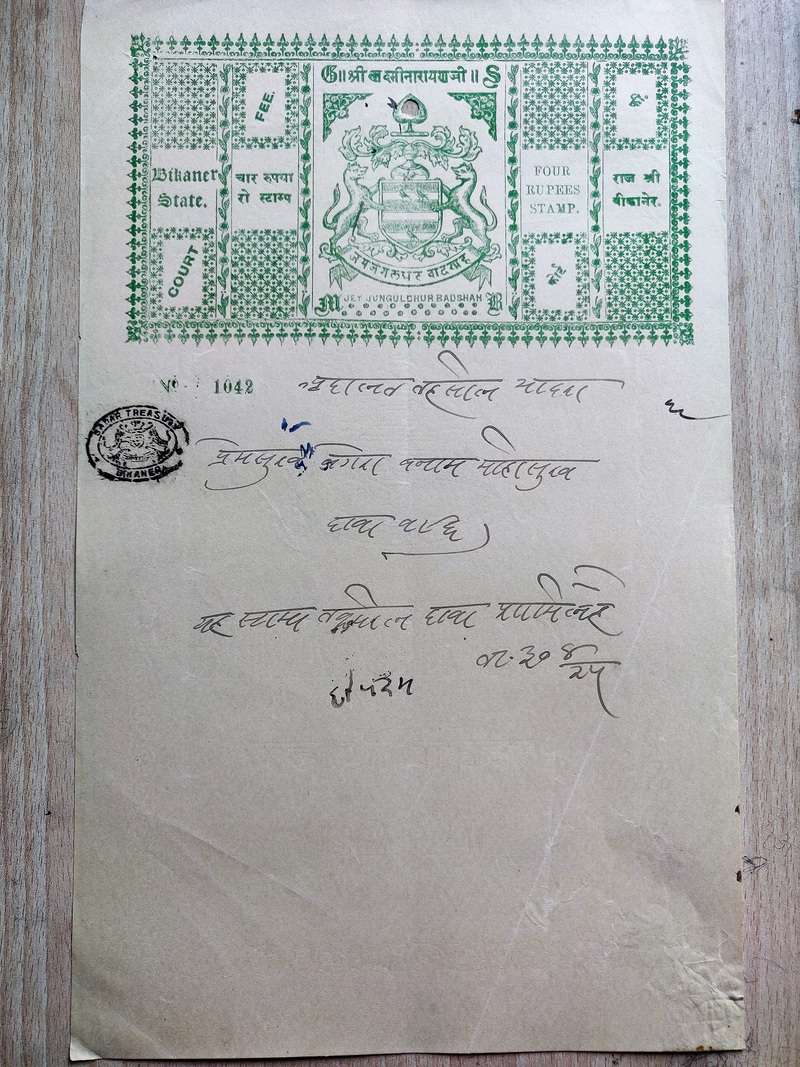 G॥ श्री लक्ष्मीनारायणजी॥ S
FEE.
Bikaner State.
चार रुपया रो स्टाम्प
COURT
FOUR RUPEES STAMP.
फीस
राज श्री बीकानेर.
कोर्ट
जयजंगलधर बादशाह
M JEY JUNGULDHUR BADSHAH B
No. 1042
SADAR TREASURY
BIKANER
तहसील भादरा
प्रेमसुख बनाम मोहोलुख
दावा
यह स्टाम्प दावा है